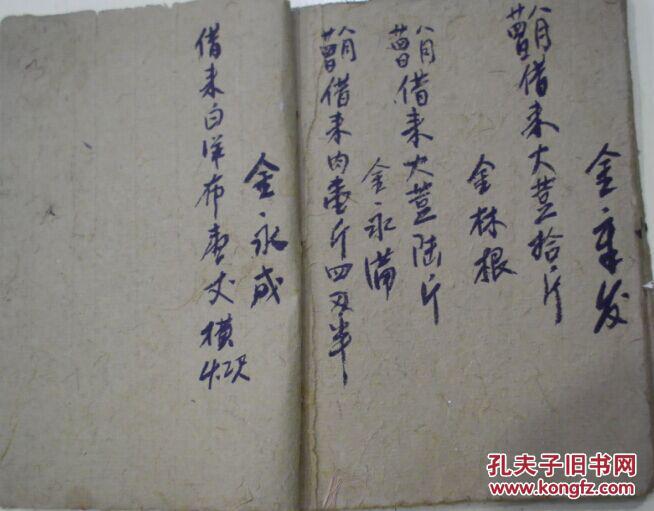 金发
八月廿四日借来大荳拾斤
金林根
八月廿四日借来大荳陆斤
金永满
八月借来肉壹斤四两半
金永成
借来白洋布壹丈横
孔夫子旧书网
www.kongfz.com